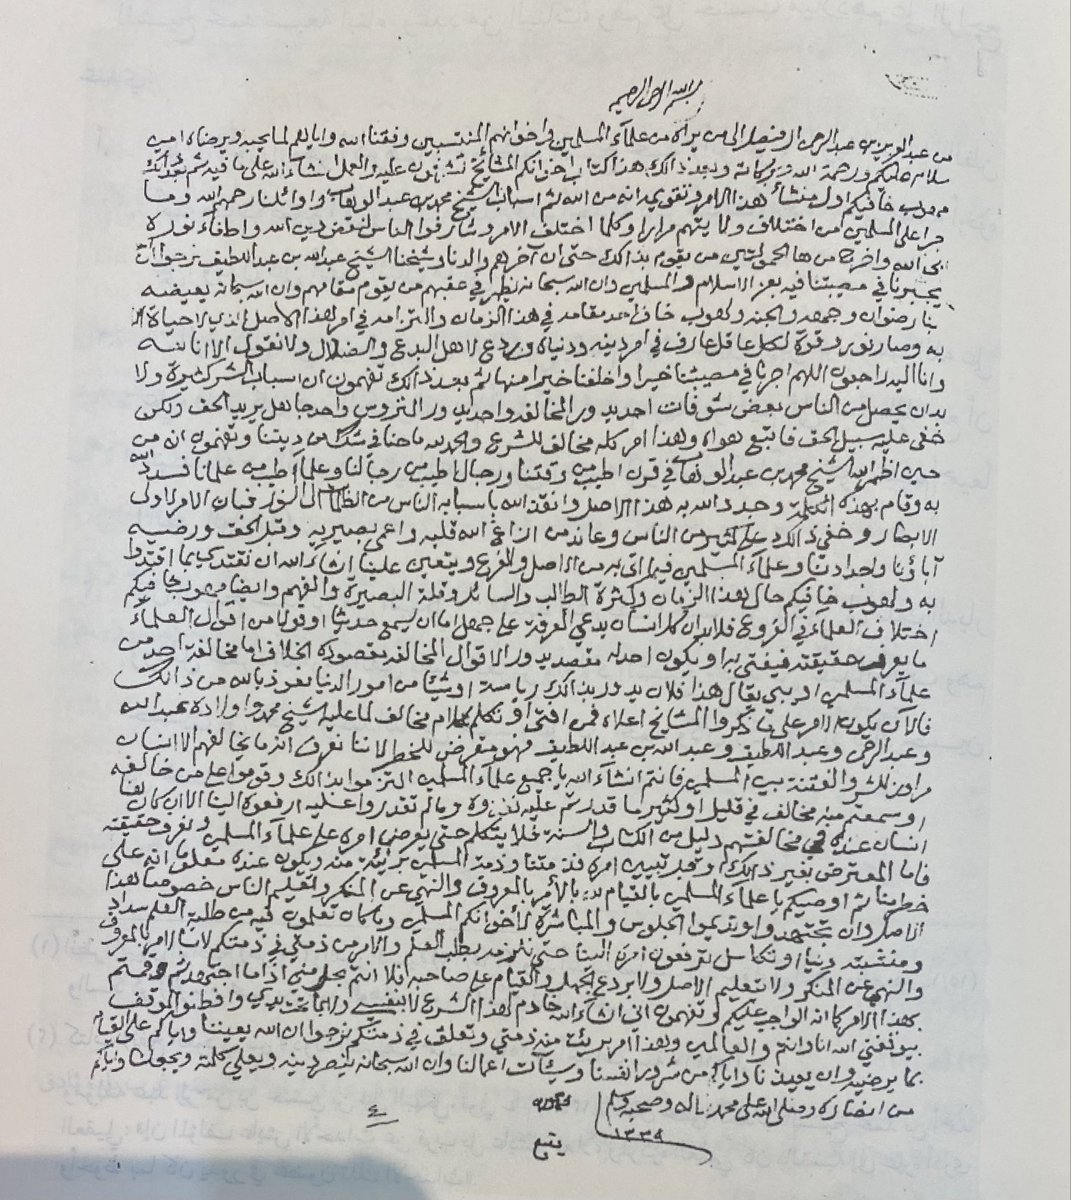 بسم الله الرحمن الرحيم
من عبد العزيز بن عبد الرحمن ال فيصل الى من يراه من علماء المسلمين واخوانهم المنتسبين وفقنا الله واياهم لما يحبه ويرضاه امين
سلام عليكم ورحمة الله وبركاته وبعد ذالك هذا كتاب اخوانكم المشائخ تشرفون عليه والعمل انشاء الله على ما فيه ثم بعد ذالك
من خافيكم اول منشأ هذا الامر وتقويمه انه من الله ثم اسباب الشيخ محمد بن عبد الوهاب واوائلنا رحمهم الله وما
جرا على المسلمين من اختلاف ولايتهم مرارا وكلما اختلف الامر وشارفوا الناس لنقض دين الله واطفاء نوره
ابى الله واخرج من هالحمولتين من يقوم بذالك حتى ان آخرهم والدنا وشيخنا الشيخ عبد الله بن عبد اللطيف نرجوا ان
يجبرنا في مصيبتنا فيه بعز الاسلام والمسلمين وان الله سبحانه يظهر في عقبهم من يقوم مقامهم وان الله سبحانه يعيضه
بنا رضوان وجمعه والجنة خافي احد مقامه في هذا الزمان والتزامه في امر هذا الاصل الذي لا حياة الا
به وصار نور وقوة لكل عاقل عارف في امر دينه ودنياه وردع لاهل البدع والضلال ولا نقول الا انا لله
وانا اليه راجعون اللهم اجرنا في مصيبتنا خيرا واخلفنا خيرا منها ثم بعد ذالك تفهمون ان اسباب الشر كثيرة ولا
بد ان يحصل من الناس بعض شوفات احد يدور المخالفه واحد يدور التروس واحد جاهل يريد الحق ولكن
خفي عليه سبيل الحق فاتبع هواه وهذا امر كله مخالف للشرع والحمد لله ماحنا في شك من ديننا وتفهمون ان من
حين اظهر الله الشيخ محمد بن عبد الوهاب في قرن اطيب من وقتنا ورجال اطيب من رجالنا وعلماء اطيب من علمائنا فسدد الله
به وقام بهذه الكلمة وجدد الله به هذا الاصل وانقذ الله باسبابه الناس من الظلمات الى النور فبان الامر لاولى
الابصار وخفي ذالك على كثير من الناس وعاند من ازاغ الله قلبه واعمى بصيرته وقبل الحق ورضيه
آباؤنا واجدادنا وعلماء المسلمين فيما اتى به من الاصل والفرع ويتعين علينا انشاء الله ان نقتدي بما اقتدوا
به خافيكم حال هذا الزمان وكثرة الطالب والسائل وقلة البصيرة والفهم وايضا خافيكم
اختلاف العلماء في الفروع فلا بد ان كل انسان يدعي المعرفة على جهل اما ان يسمع حديثا او قولا من اقوال العلماء
ما يعرف حقيقته فيفتي به او يكون احد له مقصد يدور الاقوال المخالفه مقصوده الخلاف اما مخالفة احد من
علماء المسلمين او يبي يقال هذا فلان يدور بذالك رياسة او شيئا من امور الدنيا نعوذ بالله من ذالك
فالآن يكون الامر على ما ذكروا المشائخ اعلاه فمن افتى او تكلم بكلام مخالف لما عليه الشيخ محمد واولاده عبد الله
وعبد الرحمن وعبد اللطيف وعبد الله بن عبد اللطيف فهو متعرض للخطر لاننا نعرف انه ما يخالفهم الا انسان
مراده للشر والفتنة بين المسلمين فانتم انشاء الله يا جميع علماء المسلمين التزموا بذالك وقوموا على من خالفه
او سمعتم منه مخالف في قليل او كثير ما قدرتم عليه نفذوه وما لم تقدروا عليه ارفعوه الينا الا ان كان
انسان عنده في مخالفتهم دليل من الكتاب والسنة فلا يتكلم حتى يعرض امره على علماء المسلمين وتعرف حقيقته
فاما المعترض بغير ذالك او قبل تبيين امره فذمتنا وذمة المسلمين بريئة منه ويكون عنده معلوم انه على
خطر منا ثم اوصيكم يا علماء المسلمين بالقيام لله بالأمر بالمعروف والنهي عن المنكر وتعليم الناس خصوصا هذا
الاصل وان تجتهدوا وتديموا الجلوس والمباشرة لأخوانكم المسلمين ومن كان تعلمون فيه من طلبة العلم سداد
ومنشبته دنيا او تكاسل ترفعون امره الينا حتى نلزمه بطلب العلم والامر من ذمتي في ذمتكم لا بالامر بالمعروف
والنهي عن المنكر ولا تعليم الاصل ولا بردع الجهل والقيام على صاحبه فلا انتم بحل مني اذا ما اجتهدتم وقمتم
بهذا الامر كما انه الواجب عليكم وتفهمون اني انشاء الله خادم لهذا الشرع لا بنفسي ولا بما تحت يدي وافطنوا لموقف
يوقفني الله انا وانتم والعالمين وهذا امر بريئة منه ذمتي وتعلق في ذمتكم نرجوا ان الله يعيننا واياكم على القيام
بما يرضيه وان يعيذنا واياكم من شرور انفسنا وسيئات اعمالنا وان الله سبحانه ينصر دينه ويعلي كلمته ويجعلنا واياكم
من انصاره وصلى الله على محمد وآله وصحبه وسلم
١٣٣٩
٤
يتبع